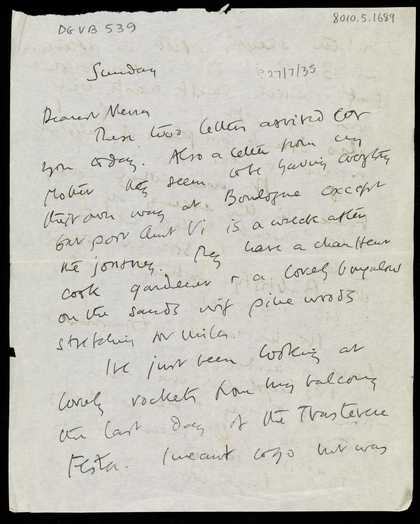 DGVB 539
8010.5.1689
Sunday
?27/7/35
Dearest Nenna
These two letters arrived for
you today. Also a letter from my
Mother they seem to be having everything
their own way at Boulogne except
that poor Aunt Vi is a wreck after
the journey. They have a chauffeur
cook gardener & a lovely bungalow
on the sands with pine woods
stretching for miles.
I've just been looking at
lovely rockets from my balcony
the last day of the Trastevere
Festa. I meant to go but was